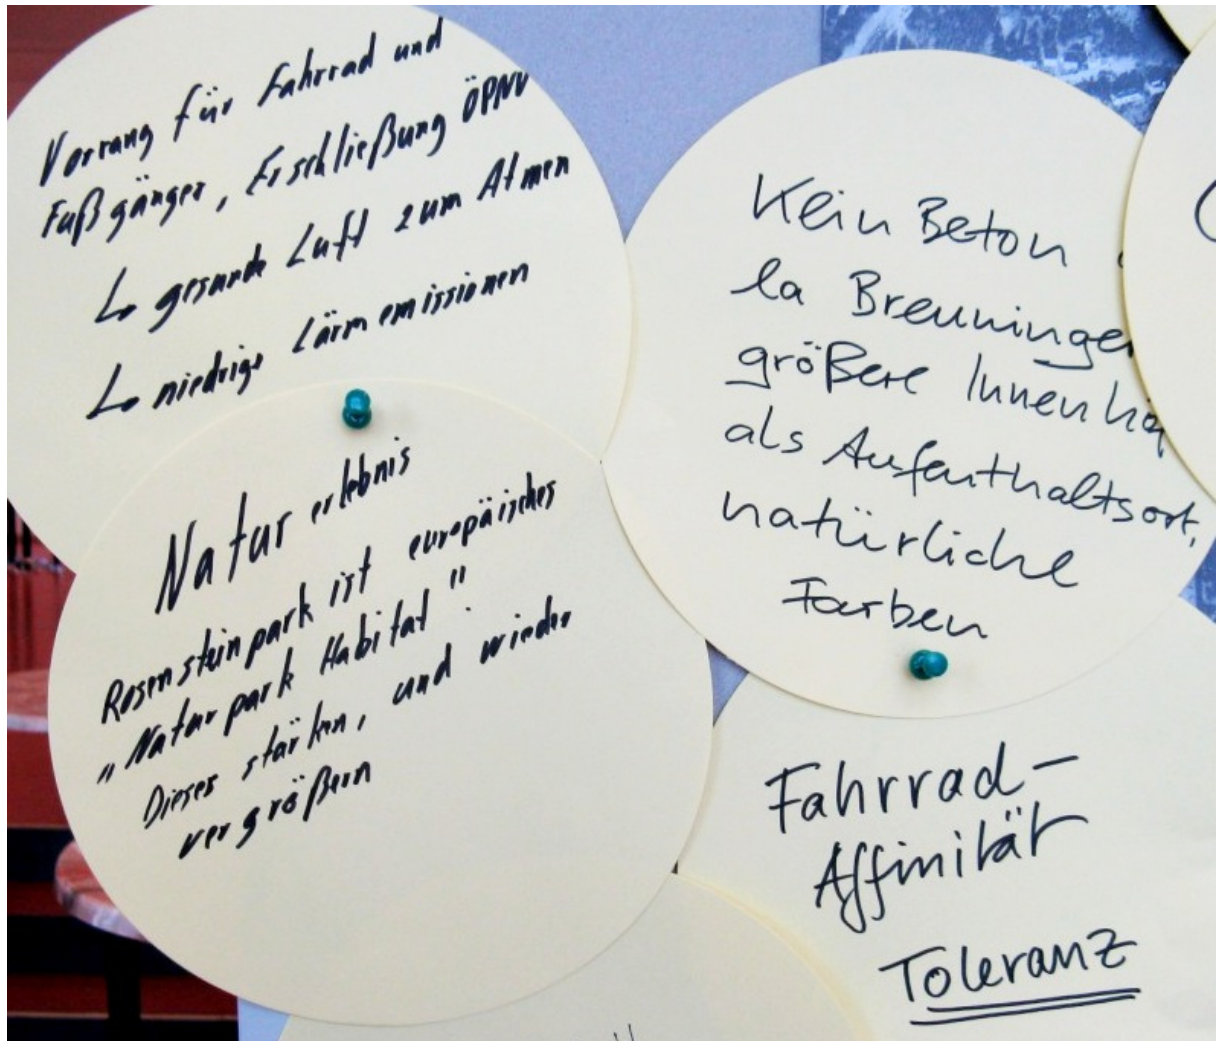 Vorrang für Fahrrad und
Fußgänger, Erschließung ÖPNV
↳ gesunde Luft zum Atmen
↳ niedrige Lärmemissionen
Naturerlebnis
Rosensteinpark ist europäisches
„Naturpark Habitat".
Dieses stärken, und wieder
vergrößern
Kein Beton
la Breuninge
größere Innenhö
als Aufenthaltsort,
natürliche
Farben
Fahrrad-
Affinität
Toleranz